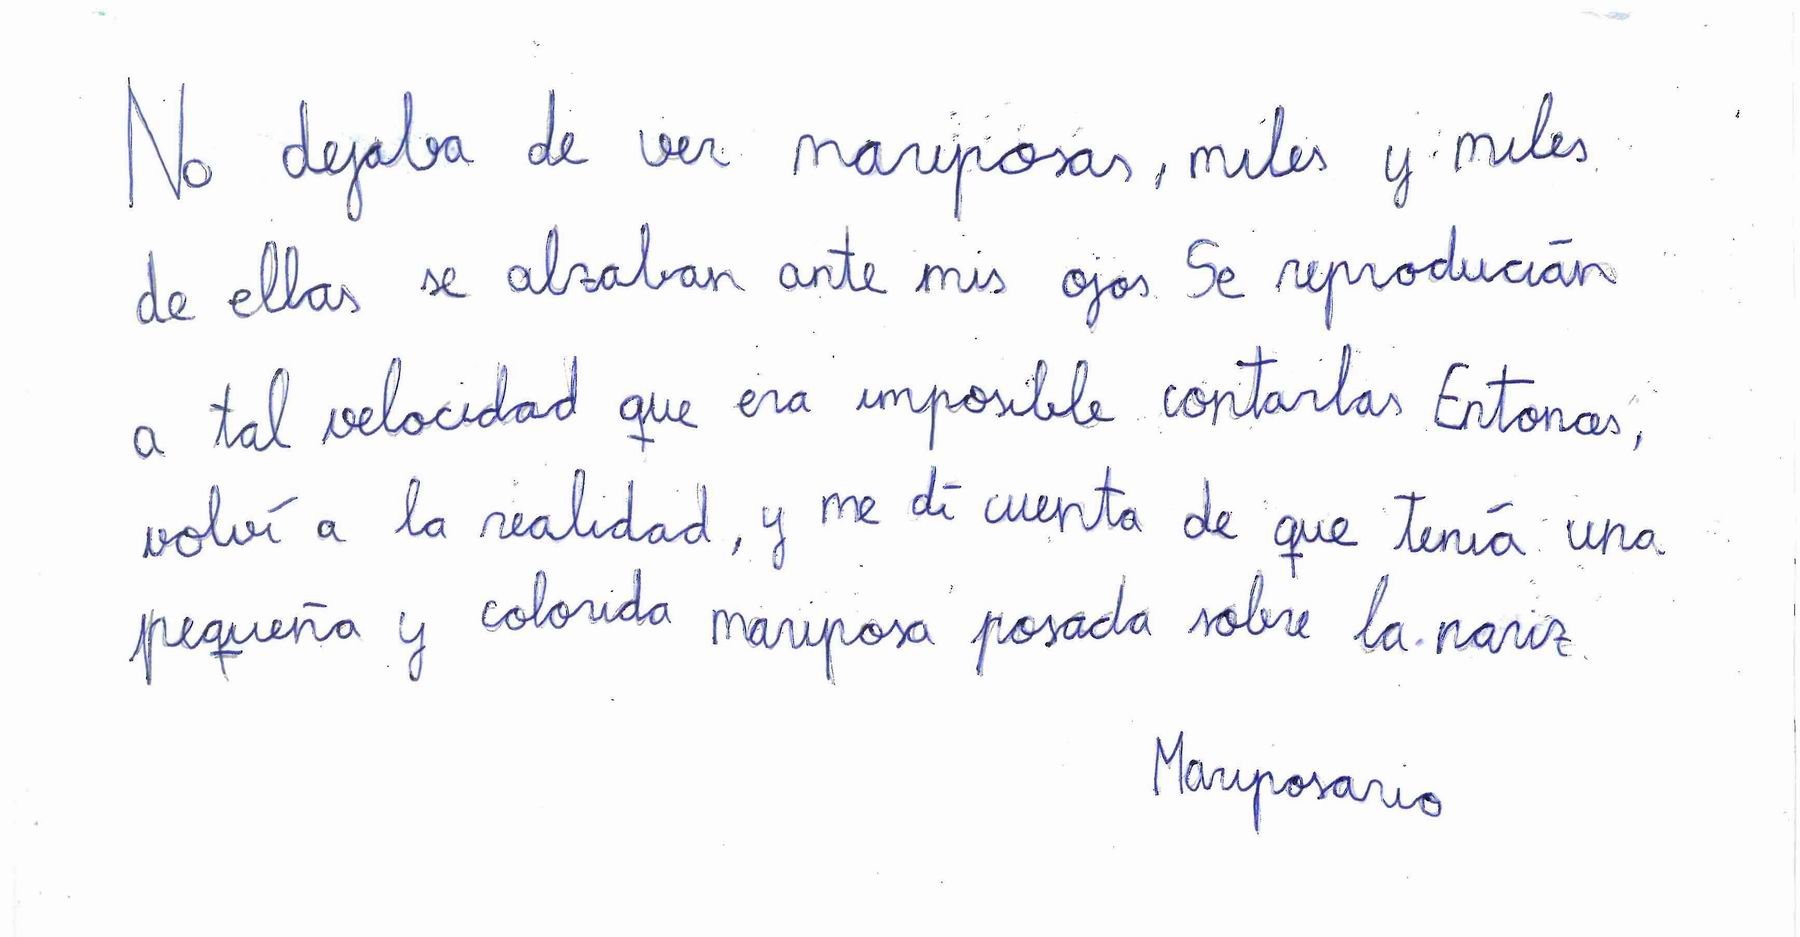 No dejaba de ver mariposas, miles y miles
de ellas se alzaban ante mis ojos Se reproducián
a tal velocidad que era imposible contarlas Entonces,
volví a la realidad, y me dí cuenta de que teniá una
pequeña y colorida mariposa posada sobre la nariz.
Mariposario